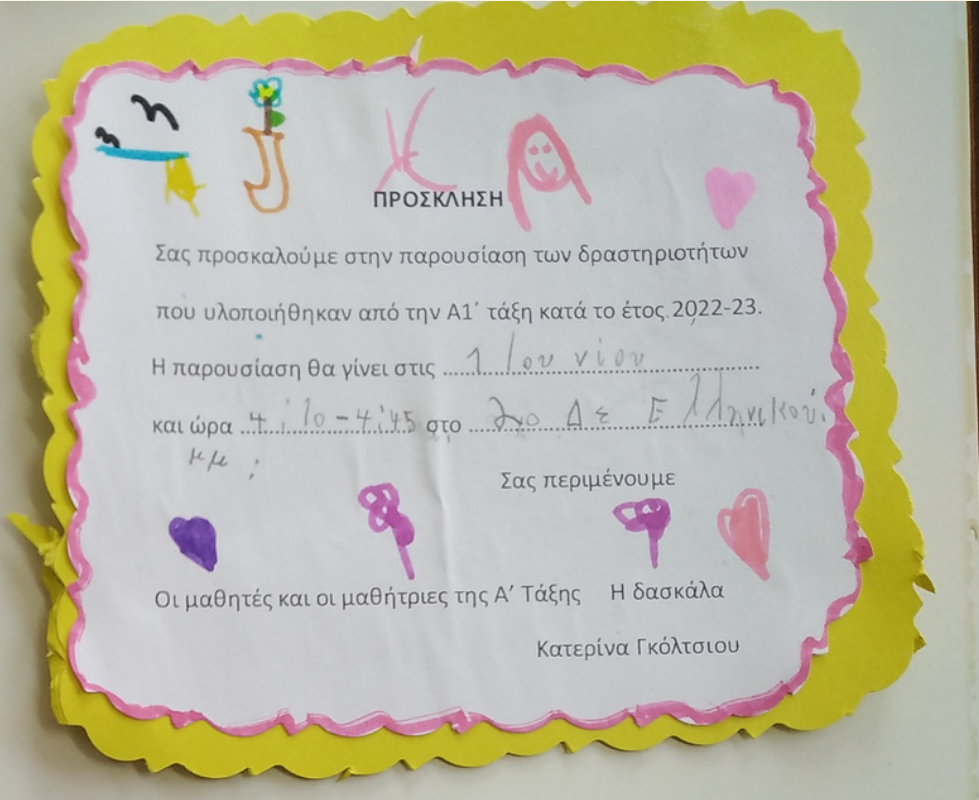 ΠΡΟΣΚΛΗΣΗ
Σας προσκαλούμε στην παρουσίαση των δραστηριοτήτων
που υλοποιήθηκαν από την Α1΄ τάξη κατά το έτος 2022-23.
Η παρουσίαση θα γίνει στις 1 Ιουνίου
και ώρα 4:10-4:45 στο 2ο Δε Ελληνικού.
μμ
Σας περιμένουμε
Οι μαθητές και οι μαθήτριες της Α΄ Τάξης Η δασκάλα
Κατερίνα Γκόλτσιου